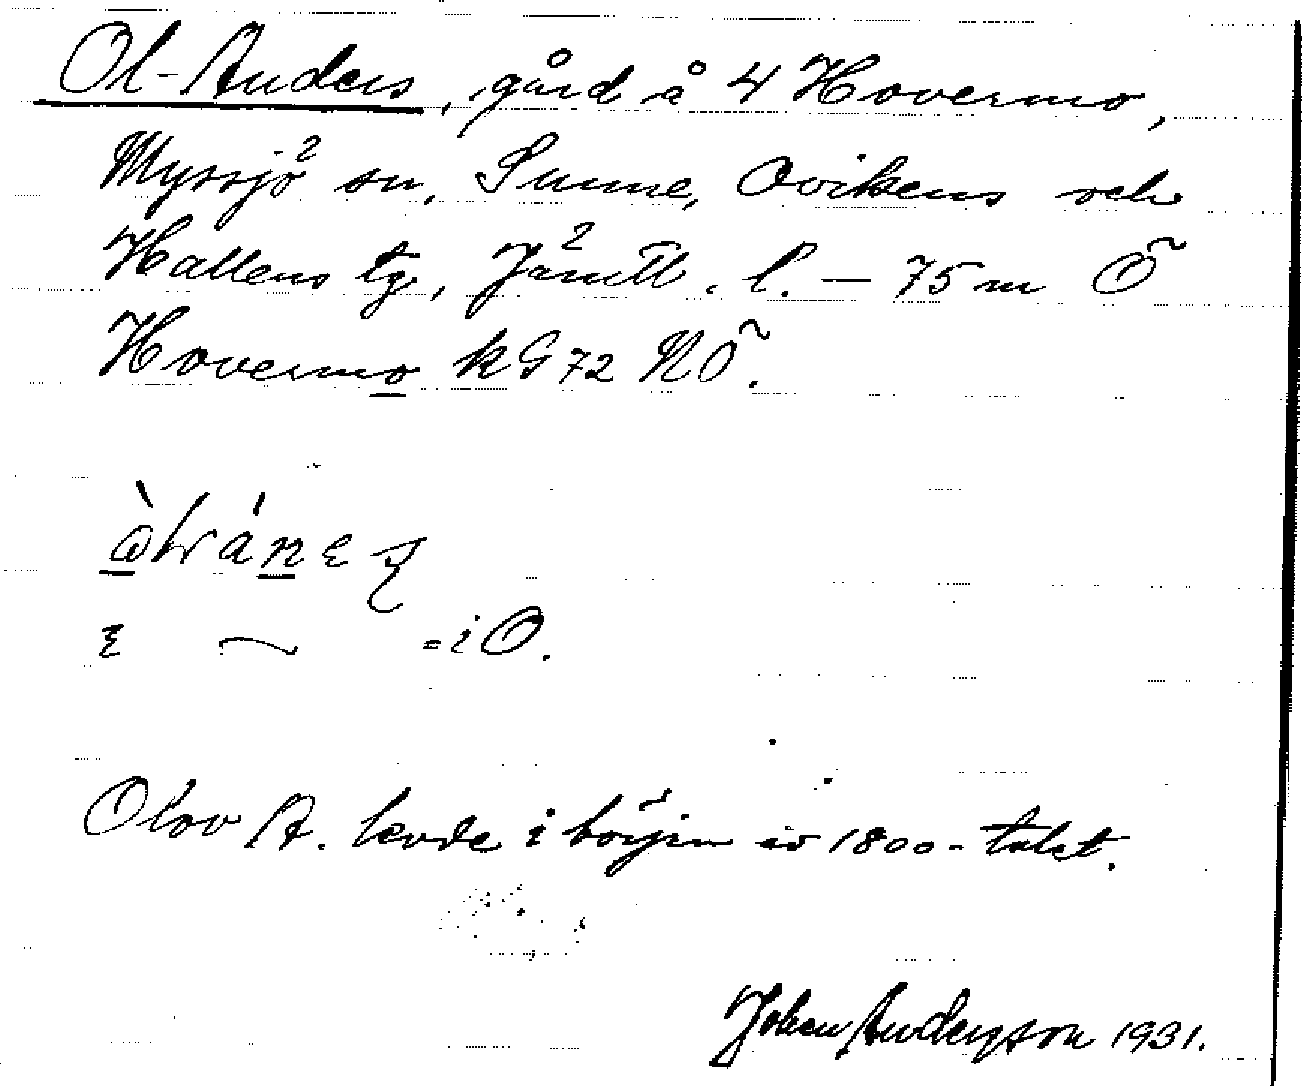 Ol-Anders, gård å 4 Hovermo,
Myssjö sn, Sunne, Ovikens och
Hallens tg, Jämtl. l. — 75 m Ö
Hovermo kG 72 NÖ.
= i O.
Olov A. levde i börjin av 1800-talet.
Johan Anderzson 1931.